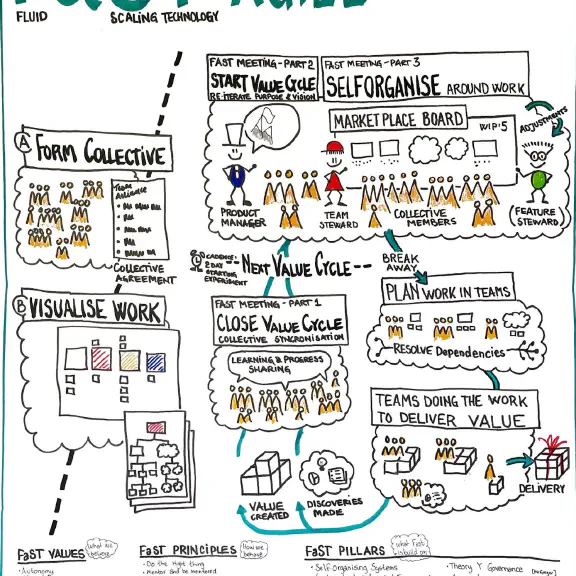 FLUID SCALING TECHNOLOGY
A FORM COLLECTIVE
COLLECTIVE
AGREEMENT
B VISUALISE WORK
FAST MEETING - PART 2
START VALUE CYCLE
RE-ITERATE PURPOSE & VISION
FAST MEETING - PART 3
SELFORGANISE AROUND WORK
MARKET PLACE BOARD
WIP:5
ADJUSTMENTS
PRODUCT
MANAGER
TEAM
STEWARD
COLLECTIVE
MEMBERS
(FEATURE
STEWARD)
CADENCE:
2 DAY
STARTING
EXPERIMENT
NEXT VALUE CYCLE
BREAK
AWAY
FAST MEETING - PART 1
CLOSE VALUE CYCLE
COLLECTIVE SYNCRONISATION
LEARNING & PROGRESS
SHARING
PLAN WORK IN TEAMS
RESOLVE DEPENDENCIES
TEAMS DOING THE WORK
TO DELIVER VALUE
DELIVERY
VALUE
CREATED
DISCOVERIES
MADE
FaST VALUES
what we
believe
• Autonomy
FaST PRINCIPLES
How we
behave
• Do the right thing
• Mentor and be mentored
FaST PILLARS
what FaST
is build on
• Self-Organising Systems
• Theory Y Governance